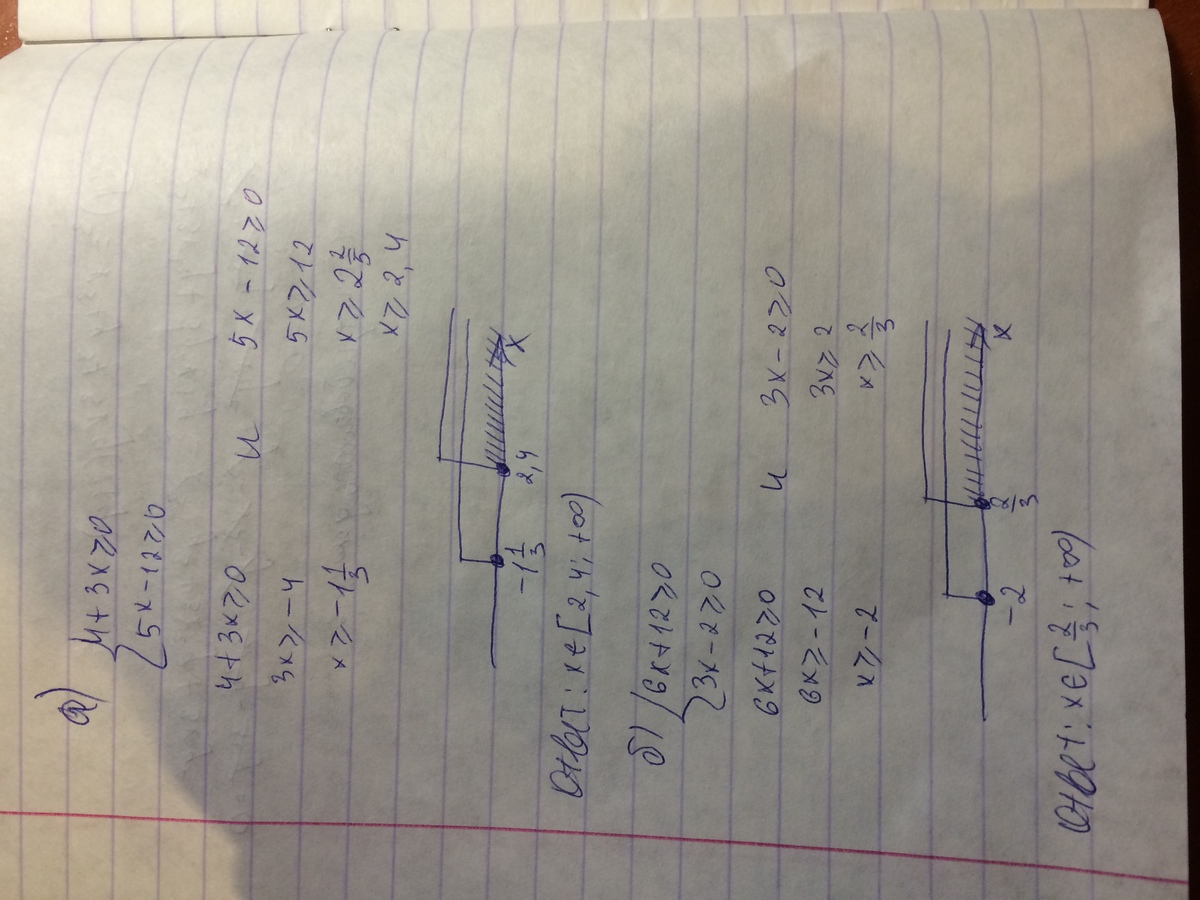 а) { 4 + 3x ≥ 0
5x - 12 ≥ 0
4 + 3x ≥ 0 и 5x - 12 ≥ 0
3x ≥ -4 5x ≥ 12
x ≥ -1 1/3 x ≥ 2 2/5
x ≥ 2,4
-1 1/3 2,4 x
Ответ: x ∈ [2,4; +∞)
б) { 6x + 12 ≥ 0
3x - 2 ≥ 0
6x + 12 ≥ 0 и 3x - 2 ≥ 0
6x ≥ -12 3x ≥ 2
x ≥ -2 x ≥ 2/3
-2 2/3 x
Ответ: x ∈ [2/3; +∞)